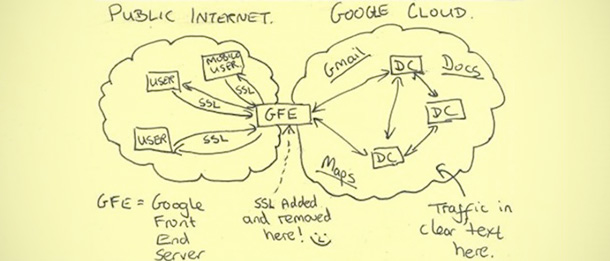 PUBLIC INTERNET.
GOOGLE CLOUD.
MOBILE
USER
USER
SSL
SSL
USER
SSL
GFE
Gmail
DC
Docs
DC
DC
Maps
GFE = Google
Front
End
Server
SSL Added
and removed
here! :)
Traffic in
clear text
here.